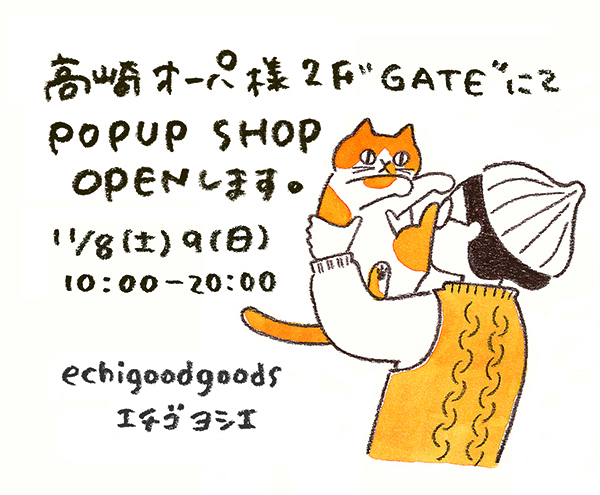 高崎オーパ様 2F "GATE"にて
POPUP SHOP
OPENします。
11/8(土) 9(日)
10:00-20:00
echigoodgoods
エチゴヨシエ